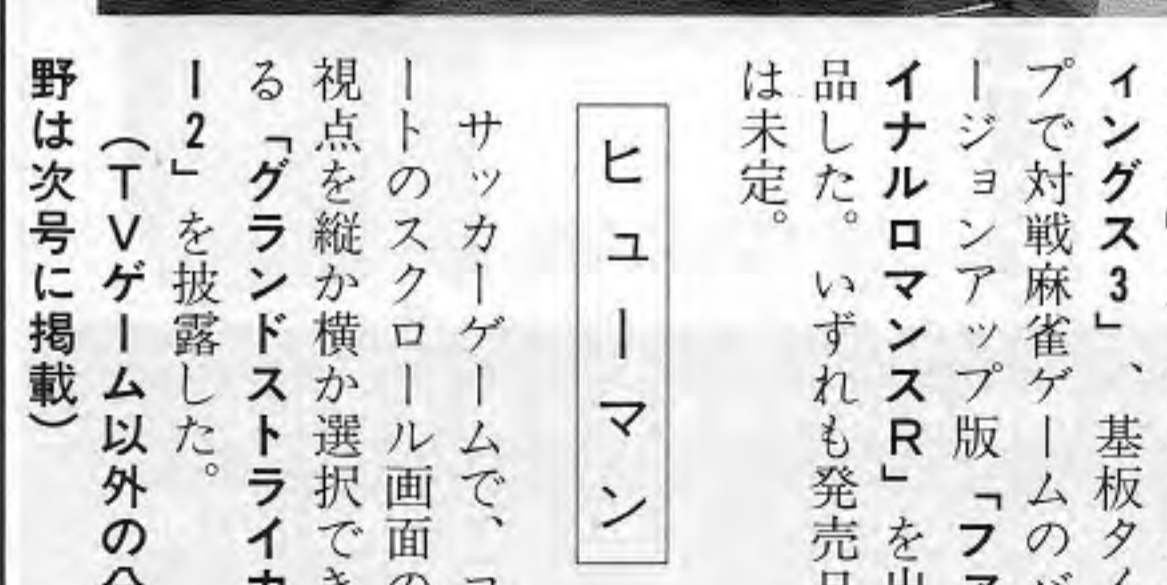 ィングス3」、基板タイ
プで対戦麻雀ゲームのバ
ージョンアップ版「ファ
イナルロマンスR」を出
品した。いずれも発売日
は未定。
ヒューマン
サッカーゲームで、コ
ートのスクロール画面の
視点を縦か横か選択でき
る「グランドストライカ
ー2」を披露した。
(TVゲーム以外の分
野は次号に掲載)